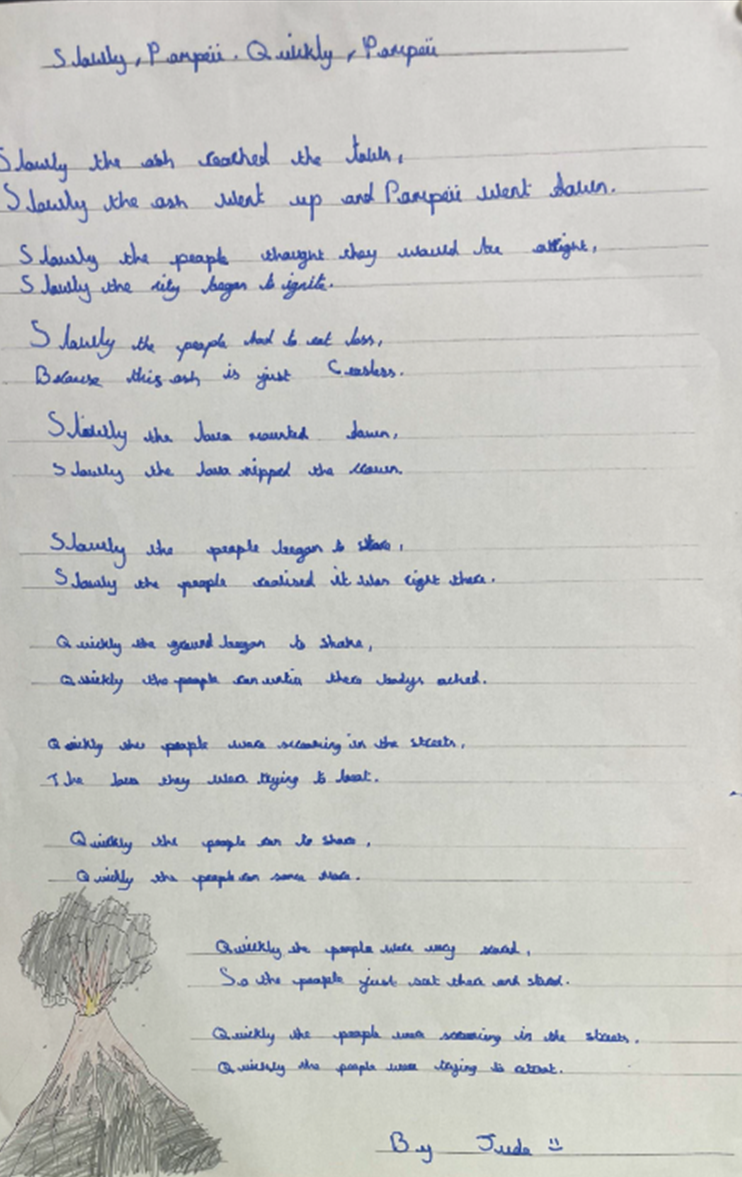 Slowly, Pompeii. Quickly, Pompeii
Slowly the ash reached the town,
Slowly the ash went up and Pompeii went down.
Slowly the people thought they would be alright,
Slowly the city began to ignite.
Slowly the people had to eat less,
Because this ash is just Ceasless.
Slowly the lava mounted down,
Slowly the lava ripped the crown.
Slowly the people began to stare,
Slowly the people realised it was right there.
Quickly the ground began to shake,
Quickly the people ran until there bodys ached.
Quickly the people were screaming in the streets,
The lava they were trying to beat.
Quickly the people ran to shore,
Quickly the people ran some more.
Quickly the people were very scared,
So the people just sat there and stared.
Quickly the people were screaming in the streets,
Quickly the people were trying to
By Jude